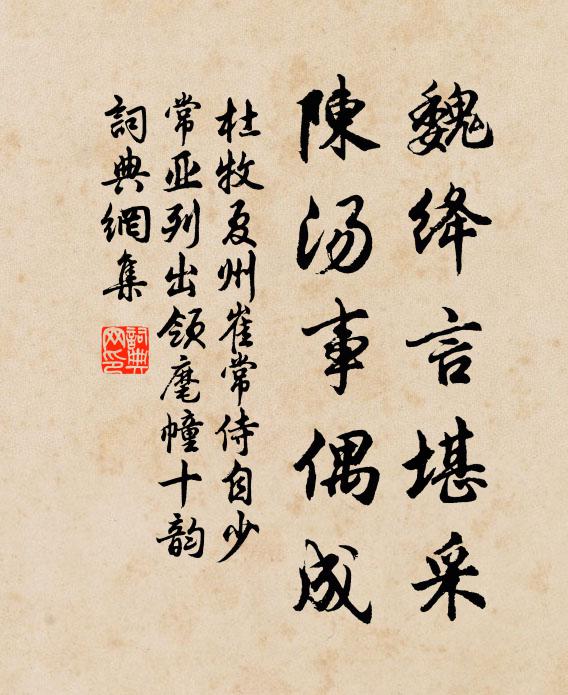 魏绛言堪采
陳汤事偶成
杜牧夏州崔常侍自少
常亚列出领麾幢十韵
詞典網集
詞典网印